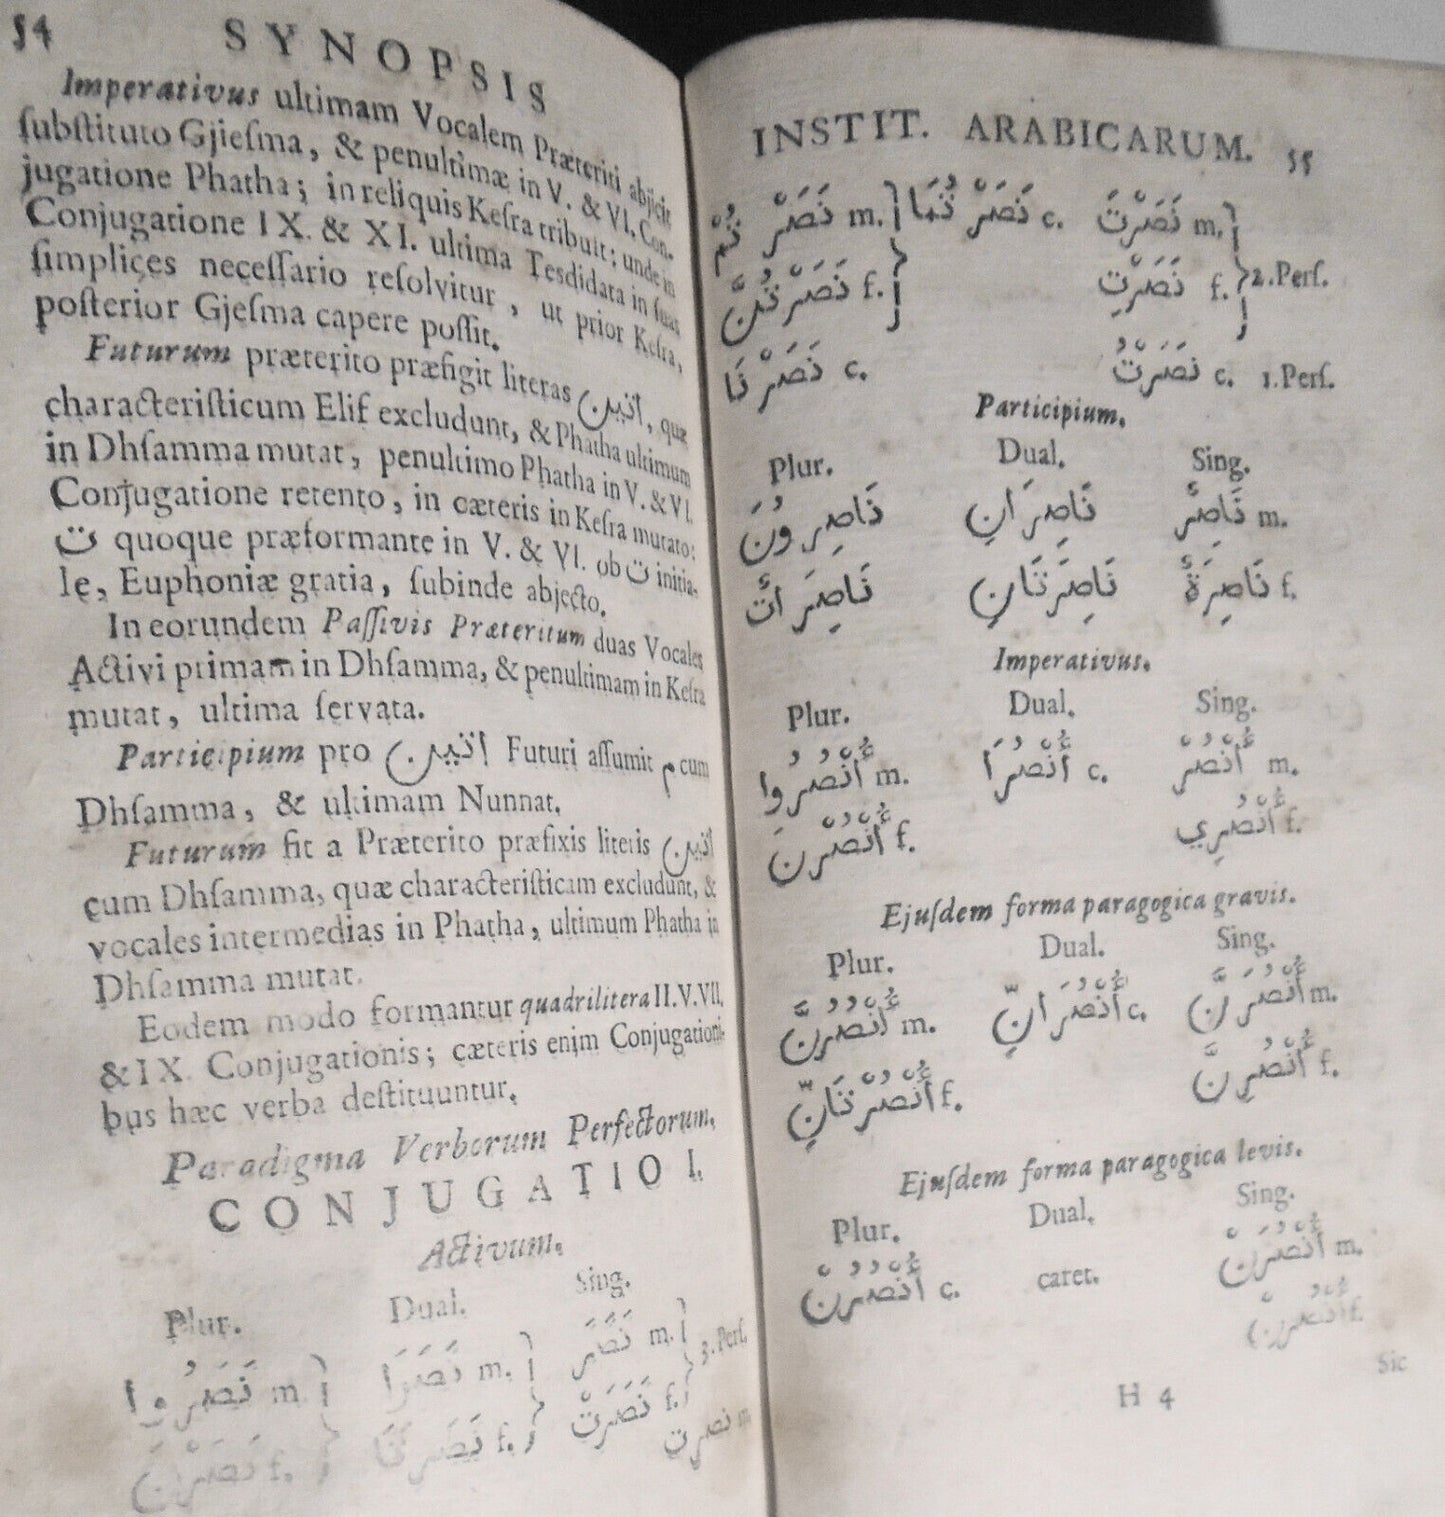 54 SYNOPSIS
Imperativus ultimam Vocalem Præteriti abjicit
ſubſtituto Gjieſma, & penultimæ in V. & VI. Con-
jugatione Phatha; in reliquis Keſra tribuit; unde in
Conjugatione IX. & XI. ultima Teſdidata in ſuas
ſimplices neceſſario reſolvitur, ut prior Keſra,
poſterior Gjeſma capere poſſit.
Futurum præterito præfigit literas اتين, quæ
characteriſticum Elif excludunt, & Phatha ultimum
in Dhſamma mutat, penultimo Phatha in V. & VI.
Conjugatione retento, in cæteris in Keſra mutato:
ت quoque præformante in V. & VI. ob ت initia-
le, Euphoniæ gratia, ſubinde abjecto.
In eorundem Paſſivis Præteritum duas Vocales
Activi primam in Dhſamma, & penultimam in Keſra
mutat, ultima ſervata.
Participium pro اتين Futuri aſſumit م cum
Dhſamma, & ultimam Nunnat.
Futurum fit a Præterito præfixis literis اتين
cum Dhſamma, quæ characteriſticam excludunt, &
vocales intermedias in Phatha, ultimum Phatha in
Dhſamma mutat.
Eodem modo formantur quadrilitera II. V. VII.
& IX. Conjugationis; cæteris enim Conjugationi-
bus hæc verba deſtituuntur.
Paradigma Verborum Perfectorum.
CONJUGATIO I.
Activum.
Plur. Dual. Sing.
نَصَرُوا m. نَصَرَا m. نَصَرَ m. 3. Perſ.
نَصَرْنَ f. نَصَرَتَا f. نَصَرَتْ f.
INSTIT. ARABICARUM. 55
نَصَرْتُمْ m. نَصَرْتُمَا c. نَصَرْتَ m.
نَصَرْتُنَّ f. نَصَرْتِ f. 2. Perſ.
نَصَرْنَا c. نَصَرْتُ c. 1. Perſ.
Participium.
Plur. Dual. Sing.
نَاصِرُونَ نَاصِرَانِ نَاصِرٌ m.
نَاصِرَاتٌ نَاصِرَتَانِ نَاصِرَةٌ f.
Imperativus.
Plur. Dual. Sing.
أُنْصُرُوا m. أُنْصُرَا c. أُنْصُرْ m.
أُنْصُرْنَ f. أُنْصُرِي f.
Ejuſdem forma paragogica gravis.
Plur. Dual. Sing.
أُنْصُرُنَّ m. أُنْصُرَانِّ c. أُنْصُرَنَّ m.
أُنْصُرْنَانِّ f. أُنْصُرِنَّ f.
Ejuſdem forma paragogica levis.
Plur. Dual. Sing.
أُنْصُرُنْ c. caret. أُنْصُرَنْ m.
أُنْصُرِنْ f.
H 4 Sic